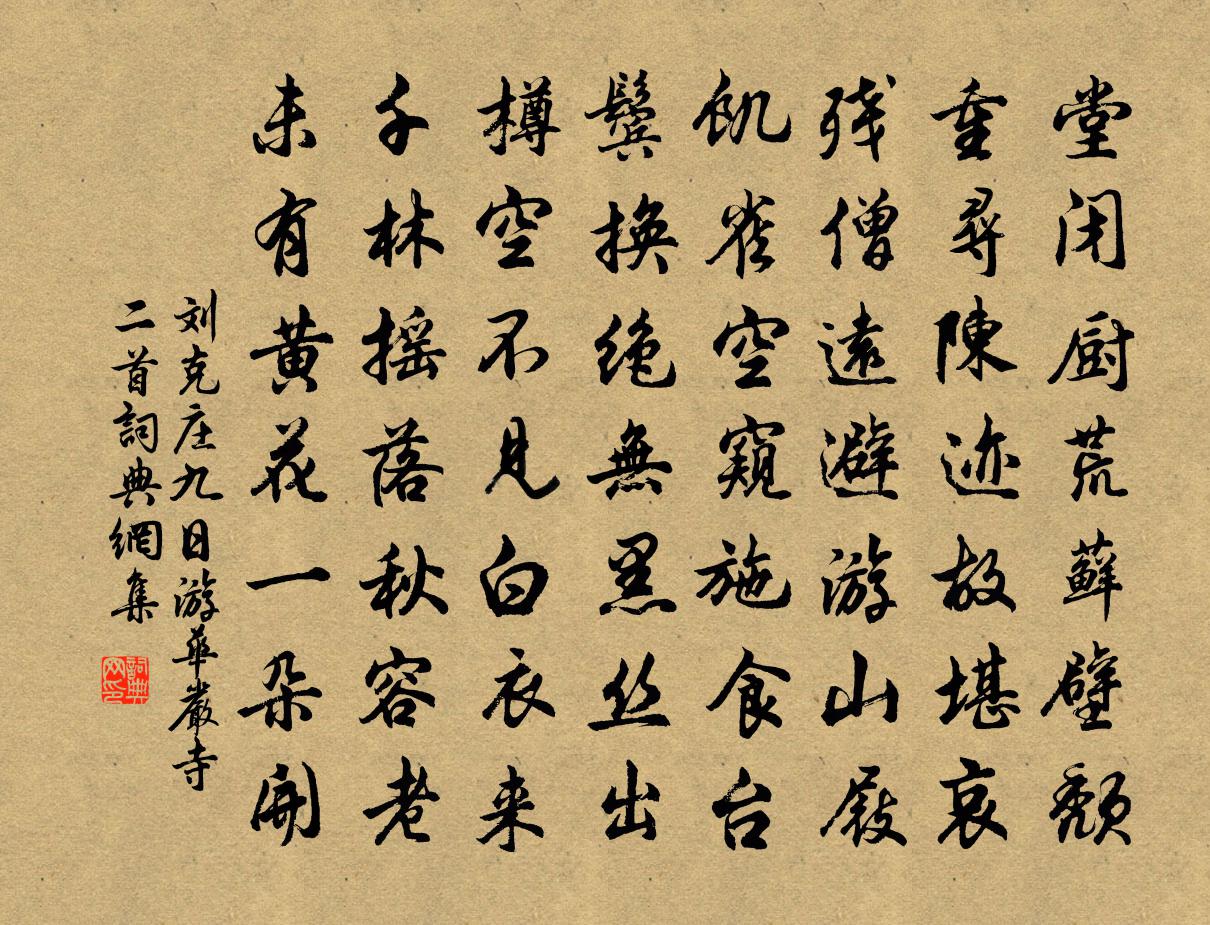 堂闭厨荒藓壁颓
重尋陳迹故堪哀
残僧遠避游山屐
飢雀空窺施食台
鬓换绝無黑丝出
樽空不見白衣来
千林摇落秋容老
未有黄花一朵開
刘克庄九日游華嚴寺
二首詞典網集
詞典网印